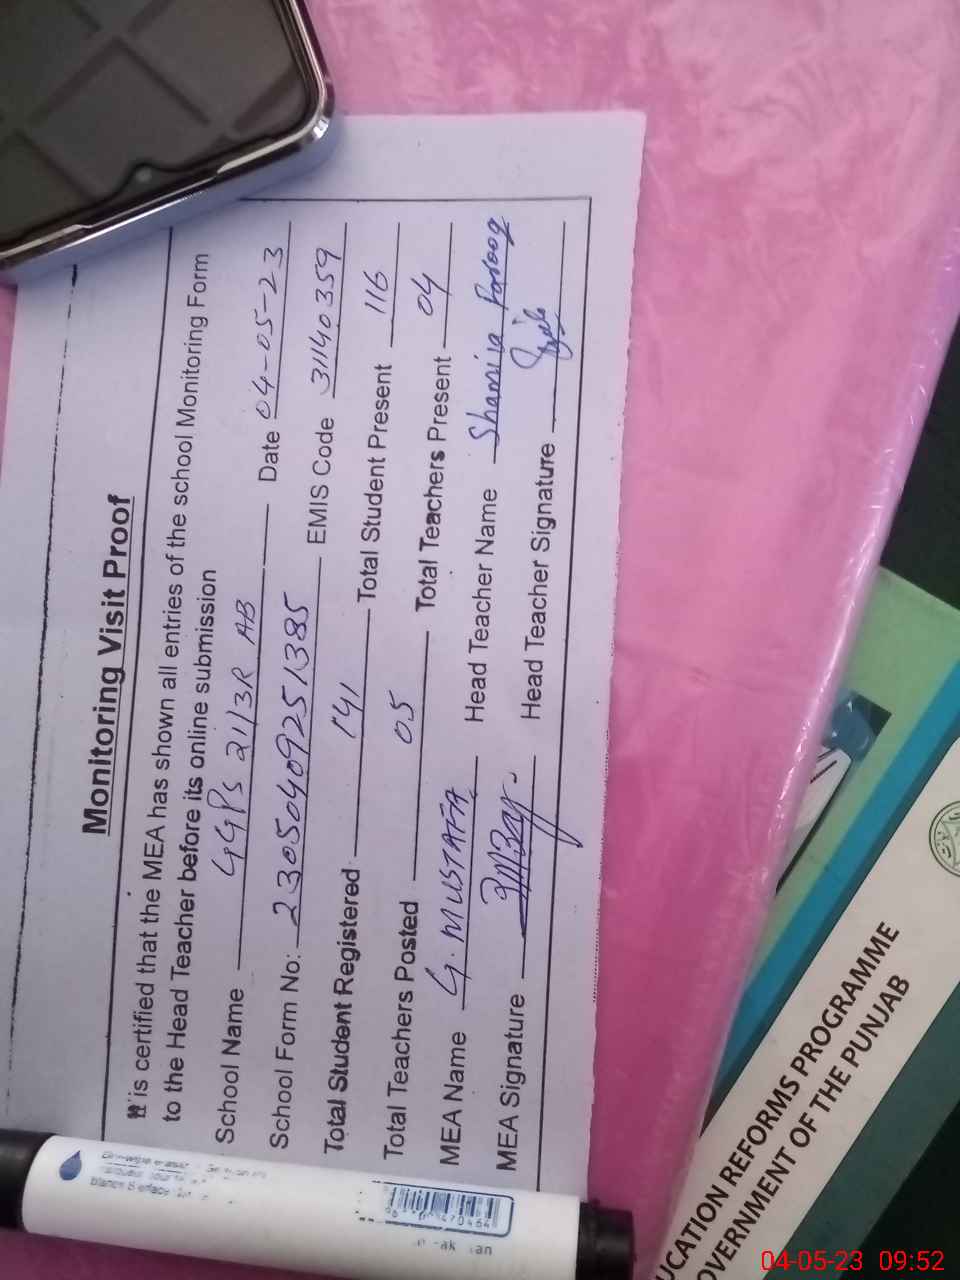 Monitoring Visit Proof
It is certified that the MEA has shown all entries of the school Monitoring Form
to the Head Teacher before its online submission
School Name GGPS 21/3R AB Date 04-05-23
School Form No: 23050409251385 EMIS Code 31140359
Total Student Registered 141 Total Student Present 116
Total Teachers Posted 05 Total Teachers Present 04
MEA Name G. MUSTAFA Head Teacher Name Shamila Farooq
MEA Signature Head Teacher Signature
UCATION REFORMS PROGRAMME
OVERNMENT OF THE PUNJAB
04-05-23 09:52